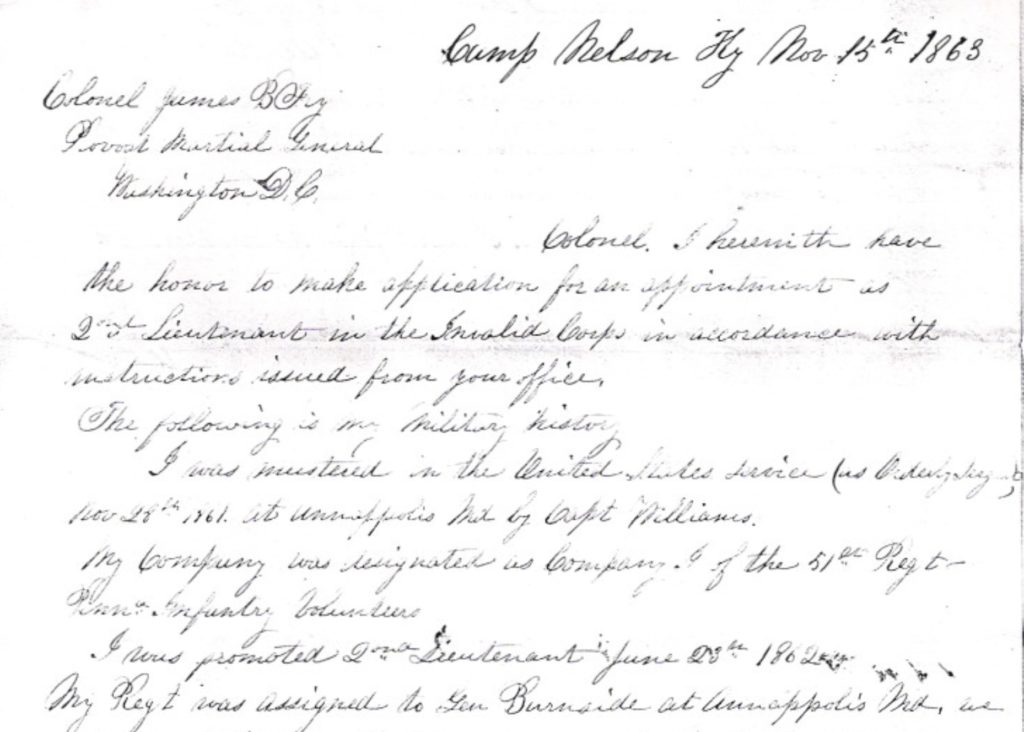 Camp Nelson Ky Nov 15th 1863
Colonel James B Fry
Provost Martial General
Washington D.C.
Colonel. I herewith have
the honor to make application for an appointment as
2nd Lieutenant in the Invalid Corps in accordance with
instructions issued from your office.
The following is my military history
I was mustered in the United States service (as Orderly Sergt)
Nov 28th 1861. at Annappolis Md by Capt Williams.
My Company was designated as Company I of the 51st Regt
Penna Infantry Volunteers
I was promoted 2nd Lieutenant June 28th 1862
My Regt was assigned to Gen Burnside at Annappolis Md, we